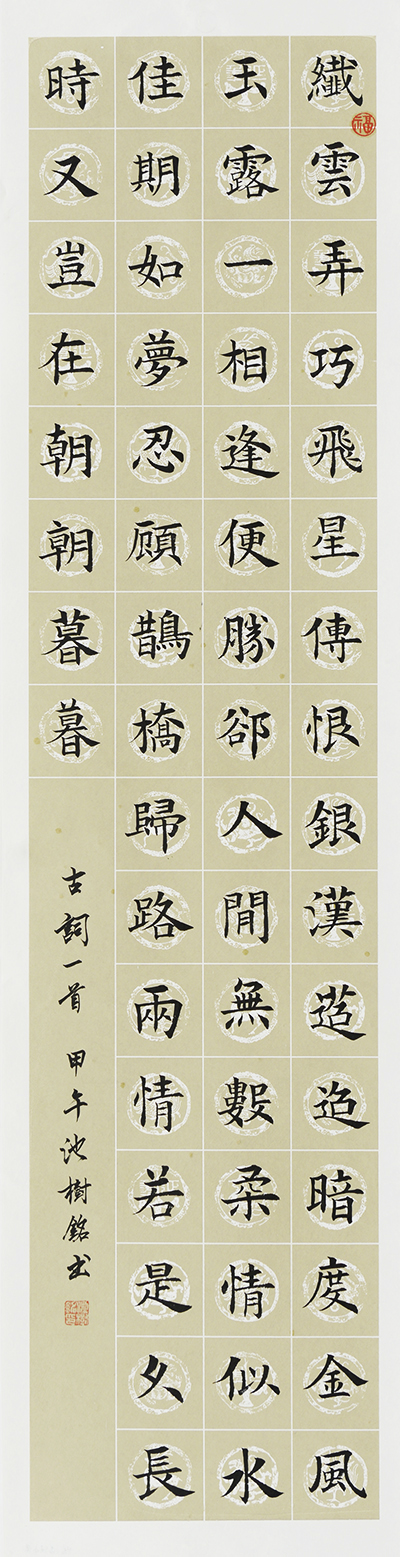 纖雲弄巧飛星傳恨銀漢迢迢暗度金風
玉露一相逢便勝卻人間無數柔情似水
佳期如夢忍顧鵲橋歸路兩情若是久長
時又豈在朝朝暮暮
古詞一首 甲午池樹銘书